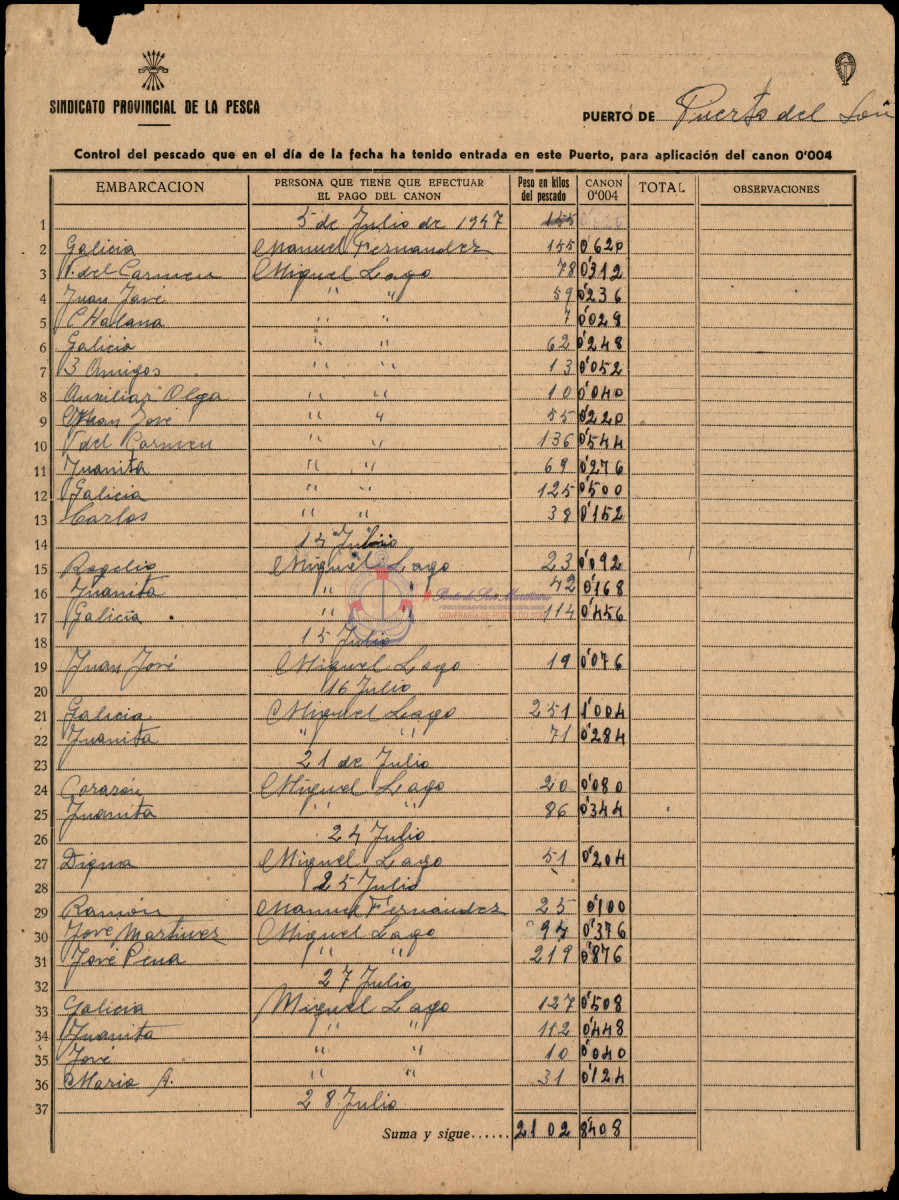 SINDICATO PROVINCIAL DE LA PESCA
PUERTO DE Puerto del Son
Control del pescado que en el día de la fecha ha tenido entrada en este Puerto, para aplicación del canon 0'004
EMBARCACION PERSONA QUE TIENE QUE EFECTUAR EL PAGO DEL CANON Peso en kilos del pescado CANON 0'004 TOTAL OBSERVACIONES
1 5 de Julio de 1947 155
2 Galicia Manuel Fernandez 155 0'620
3 V. del Carmen Miguel Lago 78 0'312
4 Juan José " " 59 0'236
5 " " 7 0'028
6 Galicia " " 62 0'248
7 3 Amigos " " 13 0'052
8 Auxiliar Olga " " 10 0'040
9 Juan José " " 55 0'220
10 V del Carmen " " 136 0'544
11 Juanita " " 69 0'276
12 Galicia " " 125 0'500
13 Carlos " " 38 0'152
14 Julio
15 Rogelio Miguel Lago 23 0'092
16 Juanita " " 42 0'168
17 Galicia " " 114 0'456
18 15 Julio
19 Juan José Miguel Lago 19 0'076
20 16 Julio
21 Galicia Miguel Lago 251 1'004
22 Juanita " " 71 0'284
23 21 de Julio
24 Corazón Miguel Lago 20 0'080
25 Juanita " " 86 0'344
26 24 Julio
27 Digna Miguel Lago 51 0'204
28 25 Julio
29 Ramón Manuel Fernández 25 0'100
30 José Martinez Miguel Lago 94 0'376
31 José Pena " " 219 0'876
32 27 Julio
33 Galicia Miguel Lago 127 0'508
34 Juanita " " 112 0'448
35 José " " 10 0'040
36 Mario A. " " 31 0'124
37 28 Julio
Suma y sigue...... 2102 8'408